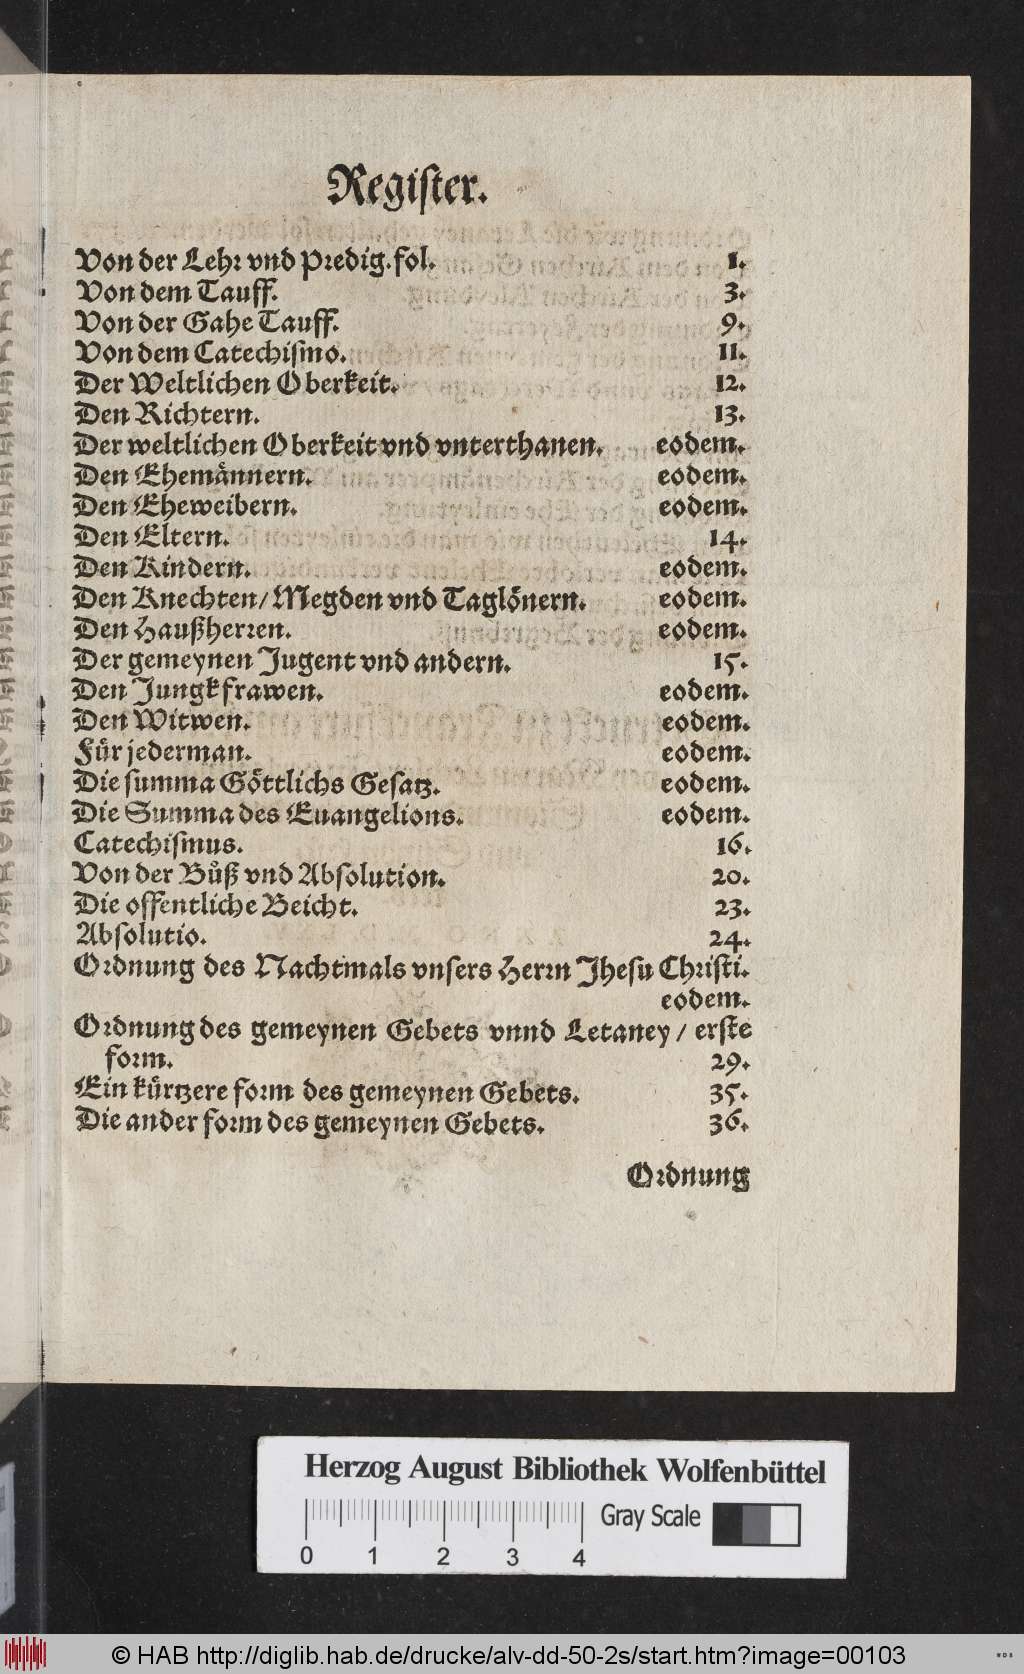 Register.
Von der Lehr vnd Predig. fol. 1.
Von dem Tauff. 3.
Von der Gahe Tauff. 9.
Von dem Catechismo. 11.
Der Weltlichen Oberkeit. 12.
Den Richtern. 13.
Der weltlichen Oberkeit vnd vnterthanen. eodem.
Den Ehemännern. eodem.
Den Eheweibern. eodem.
Den Eltern. 14.
Den Kindern. eodem.
Den Knechten/ Megden vnd Taglönern. eodem.
Den Haußherren. eodem.
Der gemeynen Jugent vnd andern. 15.
Den Jungkfrawen. eodem.
Den Witwen. eodem.
Für jederman. eodem.
Die summa Göttlichs Gesatz. eodem.
Die Summa des Euangelions. eodem.
Catechismus. 16.
Von der Bůß vnd Absolution. 20.
Die offentliche Beicht. 23.
Absolutio. 24.
Ordnung des Nachtmals vnsers Herrn Jhesu Christi.
eodem.
Ordnung des gemeynen Gebets vnnd Letaney / erste
form. 29.
Ein kürtzere form des gemeynen Gebets. 35.
Die ander form des gemeynen Gebets. 36.
Ordnung
Herzog August Bibliothek Wolfenbüttel
Gray Scale
0 1 2 3 4
© HAB http://diglib.hab.de/drucke/alv-dd-50-2s/start.htm?image=00103